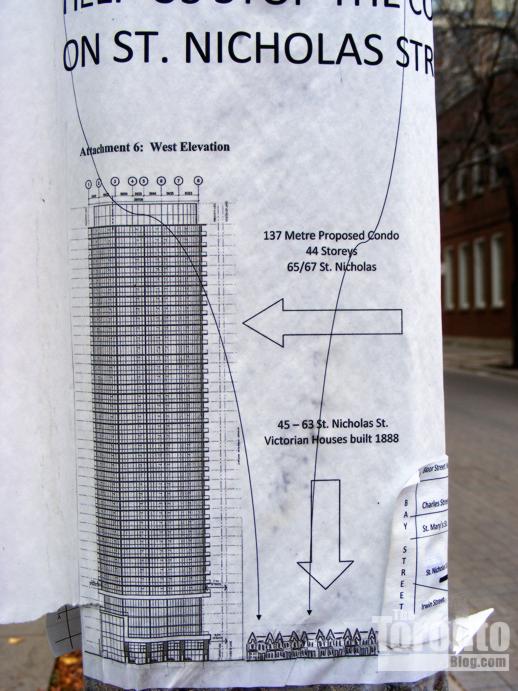 HELP US STOP THE CO
ON ST. NICHOLAS STR
Attachment 6: West Elevation
1 2 3 4 5 6 7 8
137 Metre Proposed Condo
44 Storeys
65/67 St. Nicholas
45 – 63 St. Nicholas St.
Victorian Houses built 1888
BAY STREET
Charles Stre
St. Mary's S
St. Nichola
Irwin Street
The
Toronto
Blog.com